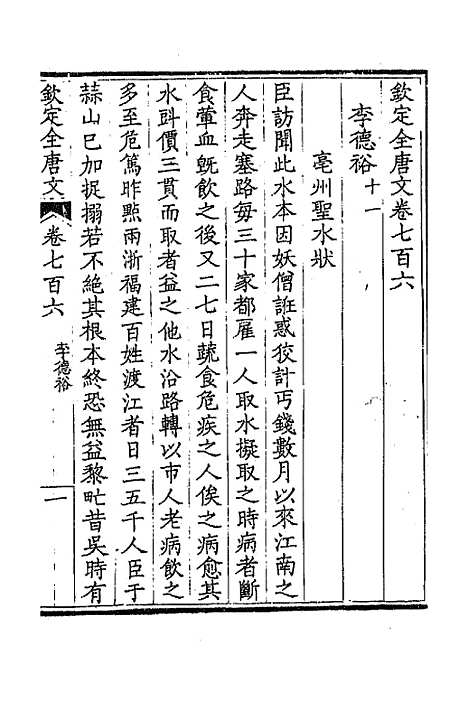 欽定全唐文卷七百六
李德裕十一
亳州聖水狀
臣訪聞此水本因妖僧誑惑狡計丐錢數月以來江南之
人奔走塞路每三十家都雇一人取水擬取之時病者斷
食葷血既飲之後又二七日蔬食危疾之人俟之病愈其
水䤜價三貫而取者益之他水沿路轉以市人老病飲之
多至危篤昨點兩浙福建百姓渡江者日三五千人臣于
蒜山已加捉搦若不絕其根本終恐無益黎甿昔吳時有
欽定全唐文
卷七百六
李德裕
一